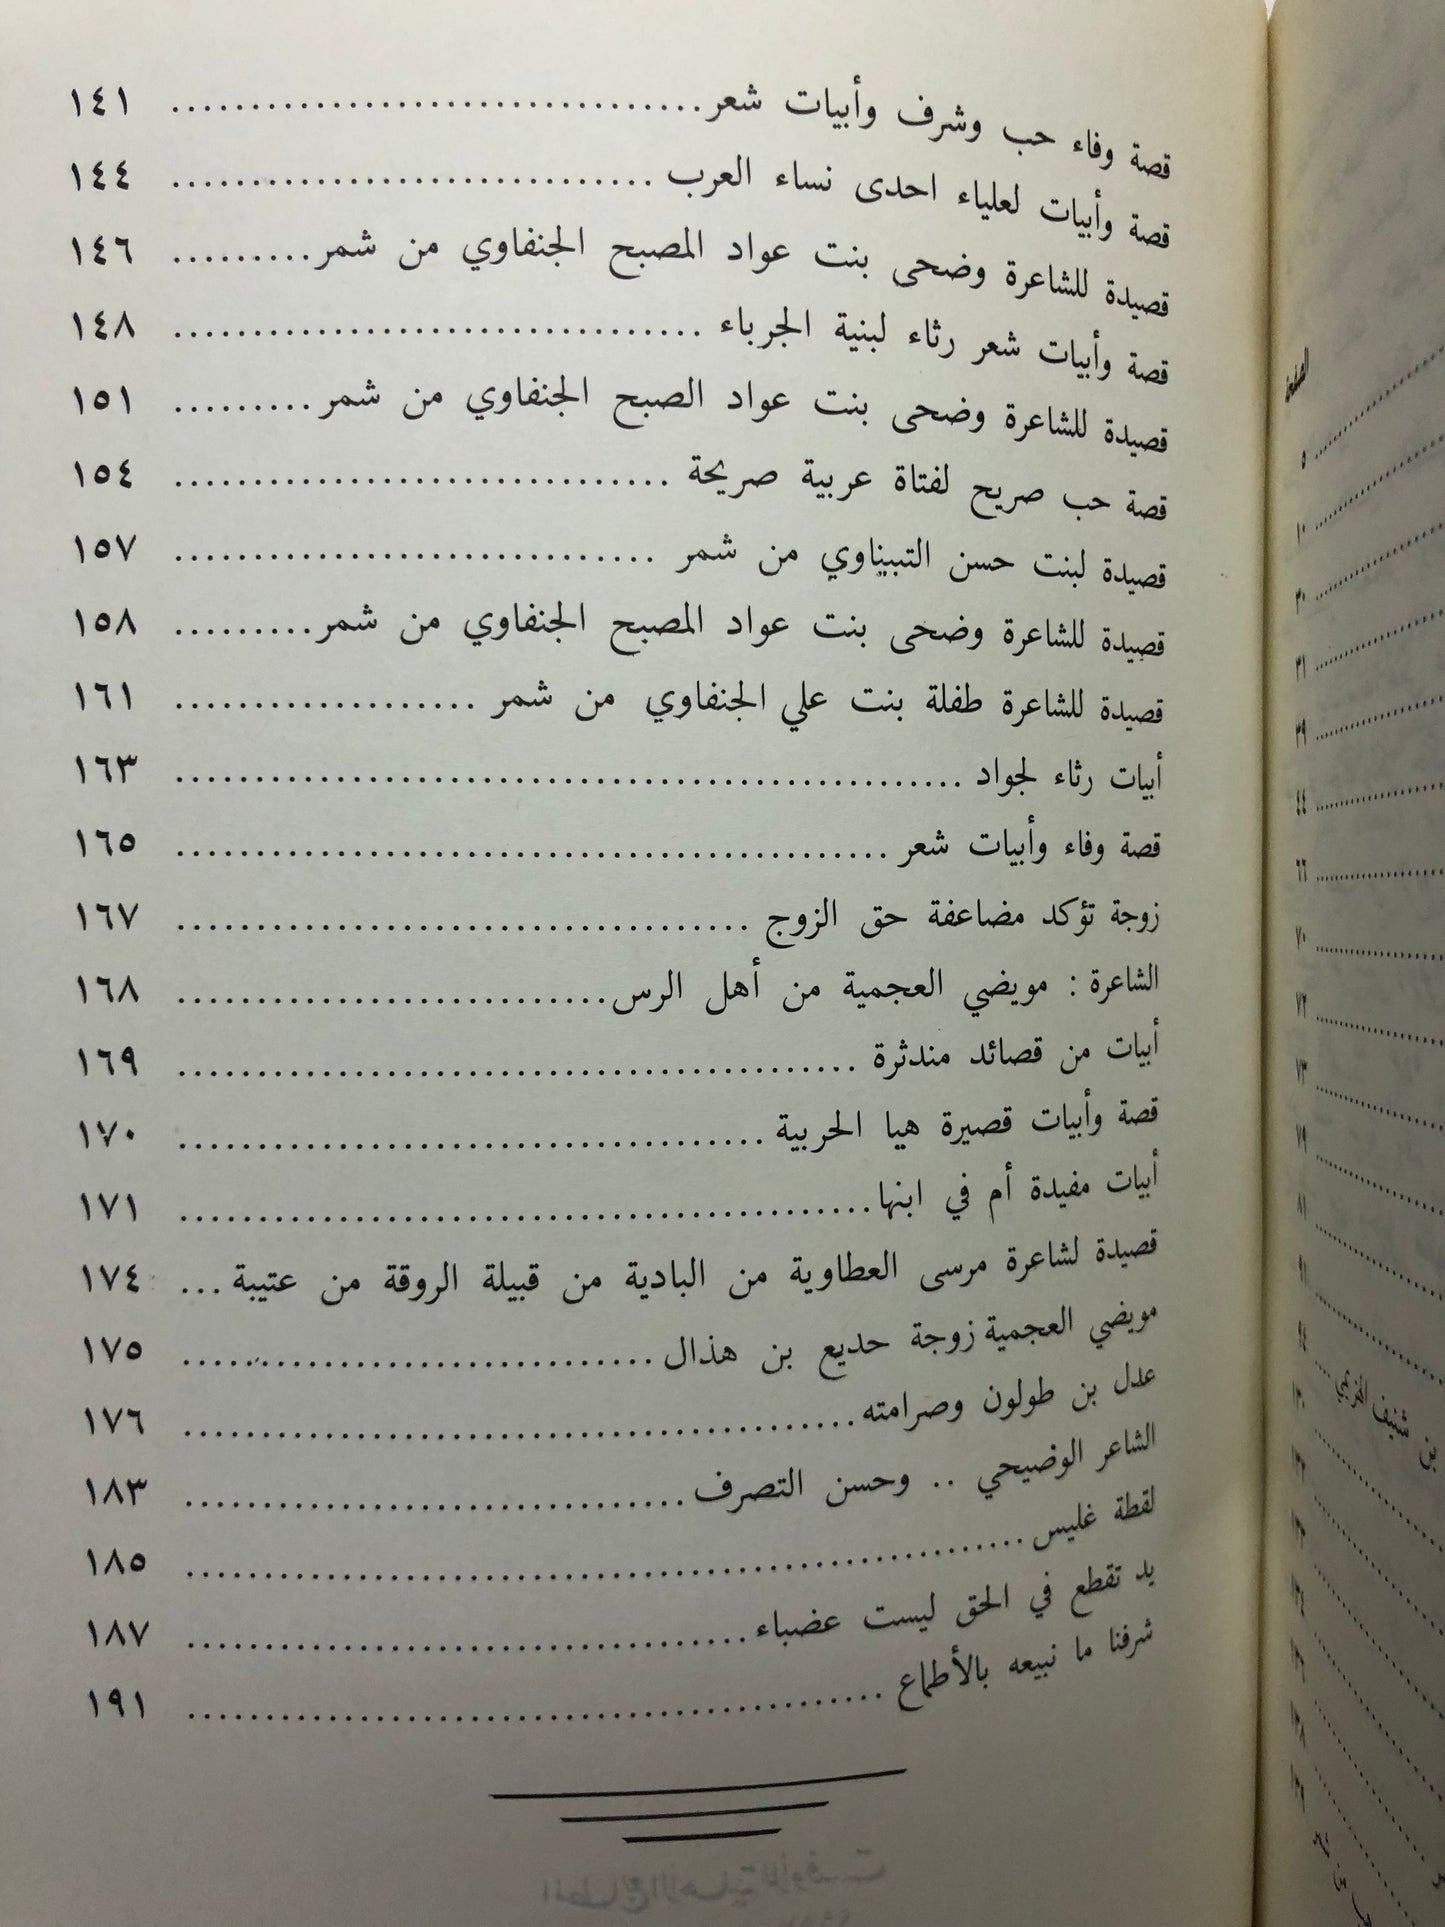 قصة وفاء حب وشرف وأبيات شعر .................................. ١٤١
قصة وأبيات لعلياء احدى نساء العرب ............................... ١٤٤
قصيدة للشاعرة وضحى بنت عواد المصبح الجنفاوي من شمر ......... ١٤٦
قصة وأبيات شعر رثاء لبنية الجرباء .................................. ١٤٨
قصيدة للشاعرة وضحى بنت عواد الصبح الجنفاوي من شمر ......... ١٥١
قصة حب صريح لفتاة عربية صريحة ................................ ١٥٤
قصيدة لبنت حسن التبيناوي من شمر ............................... ١٥٧
قصيدة للشاعرة وضحى بنت عواد المصبح الجنفاوي من شمر ......... ١٥٨
قصيدة للشاعرة طفلة بنت علي الجنفاوي من شمر ................... ١٦١
أبيات رثاء لجواد .................................................. ١٦٣
قصة وفاء وأبيات شعر .............................................. ١٦٥
زوجة تؤكد مضاعفة حق الزوج ..................................... ١٦٧
الشاعرة : مويضي العجمية من أهل الرس ............................ ١٦٨
أبيات من قصائد مندثرة ............................................ ١٦٩
قصة وأبيات قصيرة هيا الحربية ...................................... ١٧٠
أبيات مفيدة أم في ابنها ............................................. ١٧١
قصيدة لشاعرة مرسى العطاوية من البادية من قبيلة الروقة من عتيبة ... ١٧٤
مويضي العجمية زوجة حديع بن هذال .............................. ١٧٥
عدل بن طولون وصرامته ........................................... ١٧٦
الشاعر الوضيحي .. وحسن التصرف ................................ ١٨٣
لقطة غليس ...................................................... ١٨٥
يد تقطع في الحق ليست عضباء ..................................... ١٨٧
شرفنا ما نبيعه بالأطماع ............................................ ١٩١
الصفحة
٥
١٠
٣٠
٣١
٣٩
٤٤
٦٦
٧٠
٧٢
٧٣
٧٩
٨١
بن شنيف